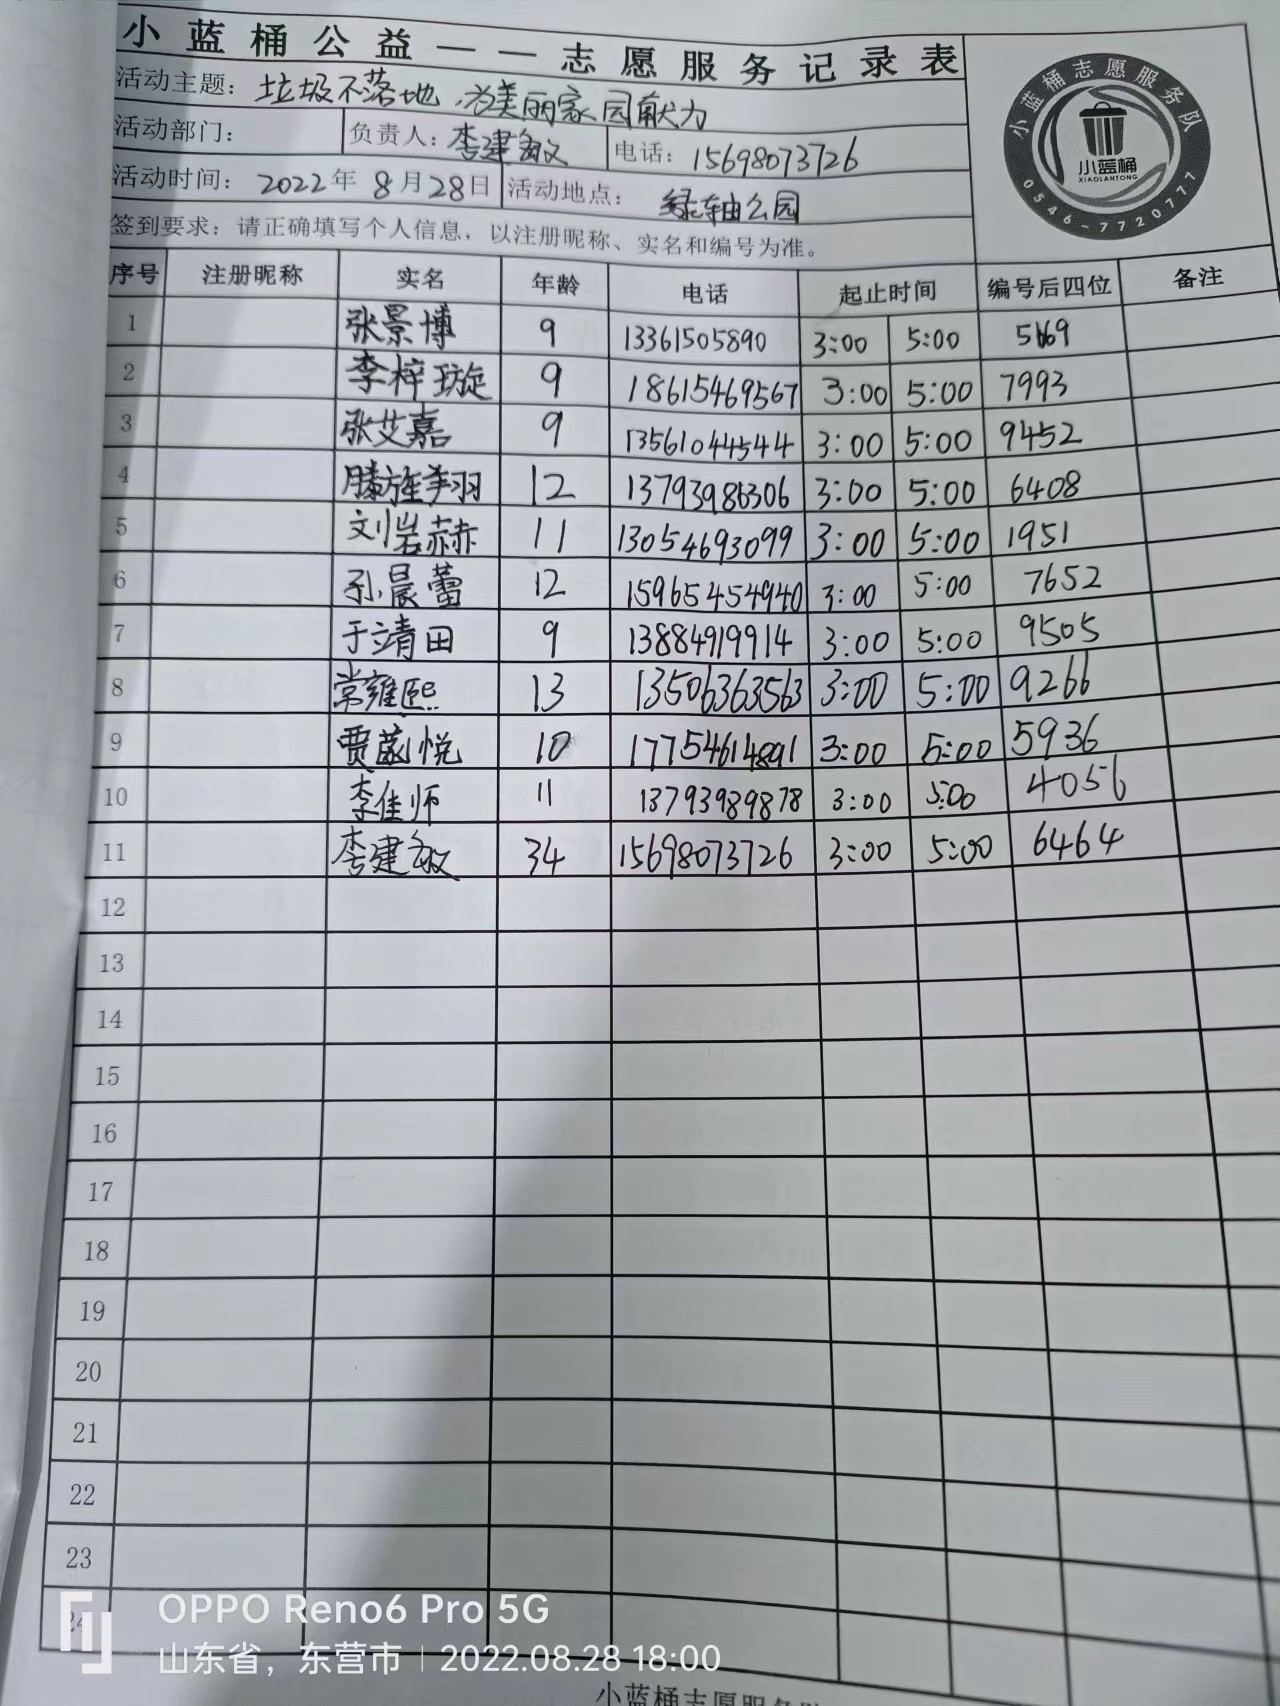 小蓝桶公益——志愿服务记录表
活动主题：垃圾不落地，为美丽家园献力
活动部门： 负责人：李建敏 电话：15698073726
活动时间：2022年8月28日 活动地点：绿轴公园
签到要求：请正确填写个人信息，以注册昵称、实名和编号为准。
小蓝桶志愿服务队
小蓝桶
XIAOLANTONG
0546-7720777
序号 注册昵称 实名 年龄 电话 起止时间 编号后四位 备注
1 张景博 9 13361505890 3:00 5:00
2 李梓璇 9 18615469567 3:00 5:00 7993
3 张艾嘉 9 13561044544 3:00 5:00 9452
4 12 13793986306 3:00 5:00 6408
5 刘岩赫 11 13054693099 3:00 5:00 1951
6 孙晨蕾 12 15965454940 3:00 5:00 7652
7 于靖田 9 13884919914 3:00 5:00 9505
8 常雍熙 13 13506363563 3:00 5:00 9266
9 贾 悦 10 17754614891 3:00 5:00 5936
10 李佳师 11 13793989878 3:00 5:00 4056
11 李建敏 34 15698073726 3:00 5:00 6464
12
13
14
15
16
17
18
19
20
21
22
23
24
OPPO Reno6 Pro 5G
山东省，东营市 | 2022.08.28 18:00
小蓝桶志愿服务队